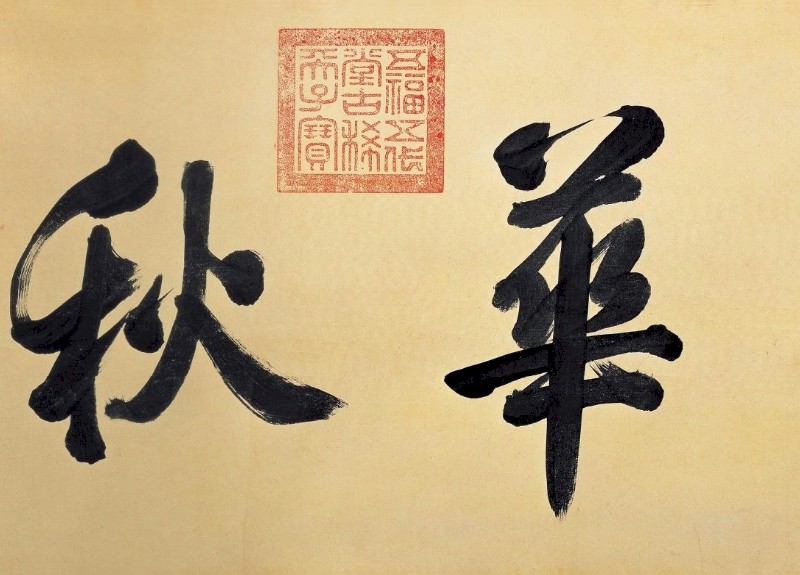 華秋
五福五代
堂古稀
天子寶